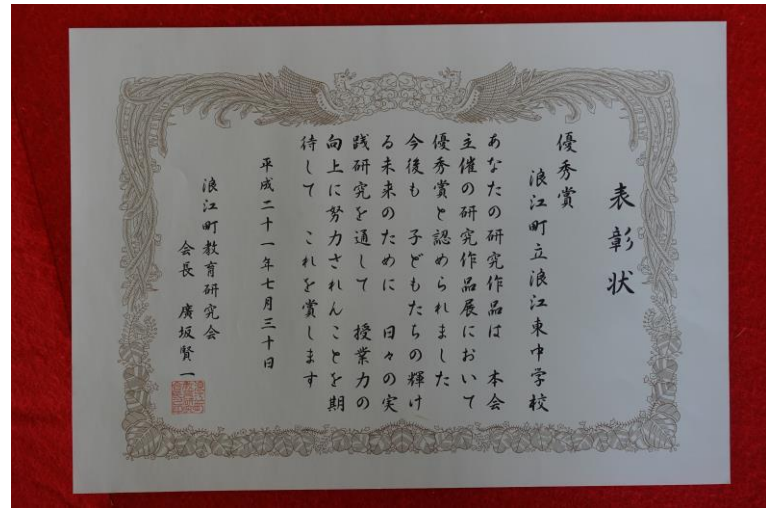 表彰状
優秀賞
浪江町立浪江東中学校
あなたの研究作品は　本会
主催の研究作品展において
優秀賞と認められました
今後も　子どもたちの輝け
る未来のために　日々の実
践研究を通して　授業力の
向上に努力されんことを期
待して　これを賞します
平成二十一年七月三十日
浪江町教育研究会
会長　廣坂賢一